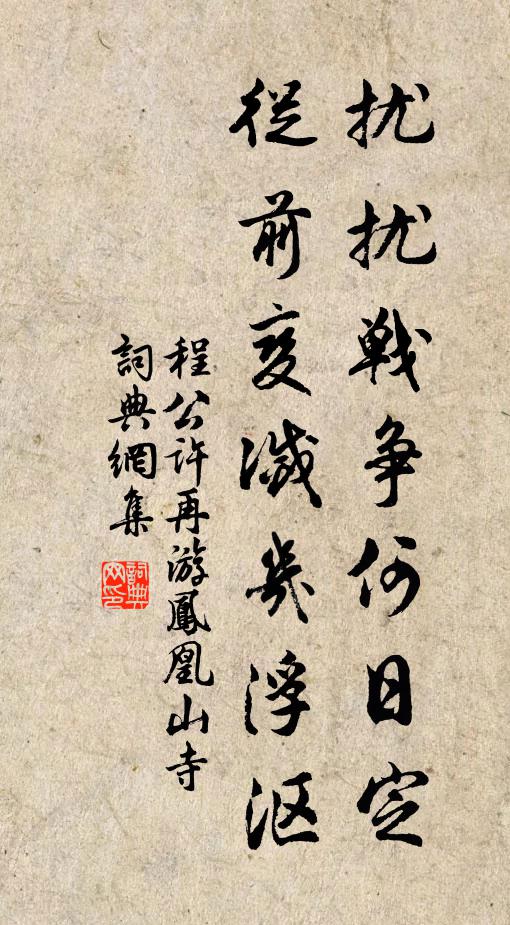 扰扰戦争何日定
從前変滅幾浮沤
程公許再游鳳凰山寺
詞典網集
詞典网印